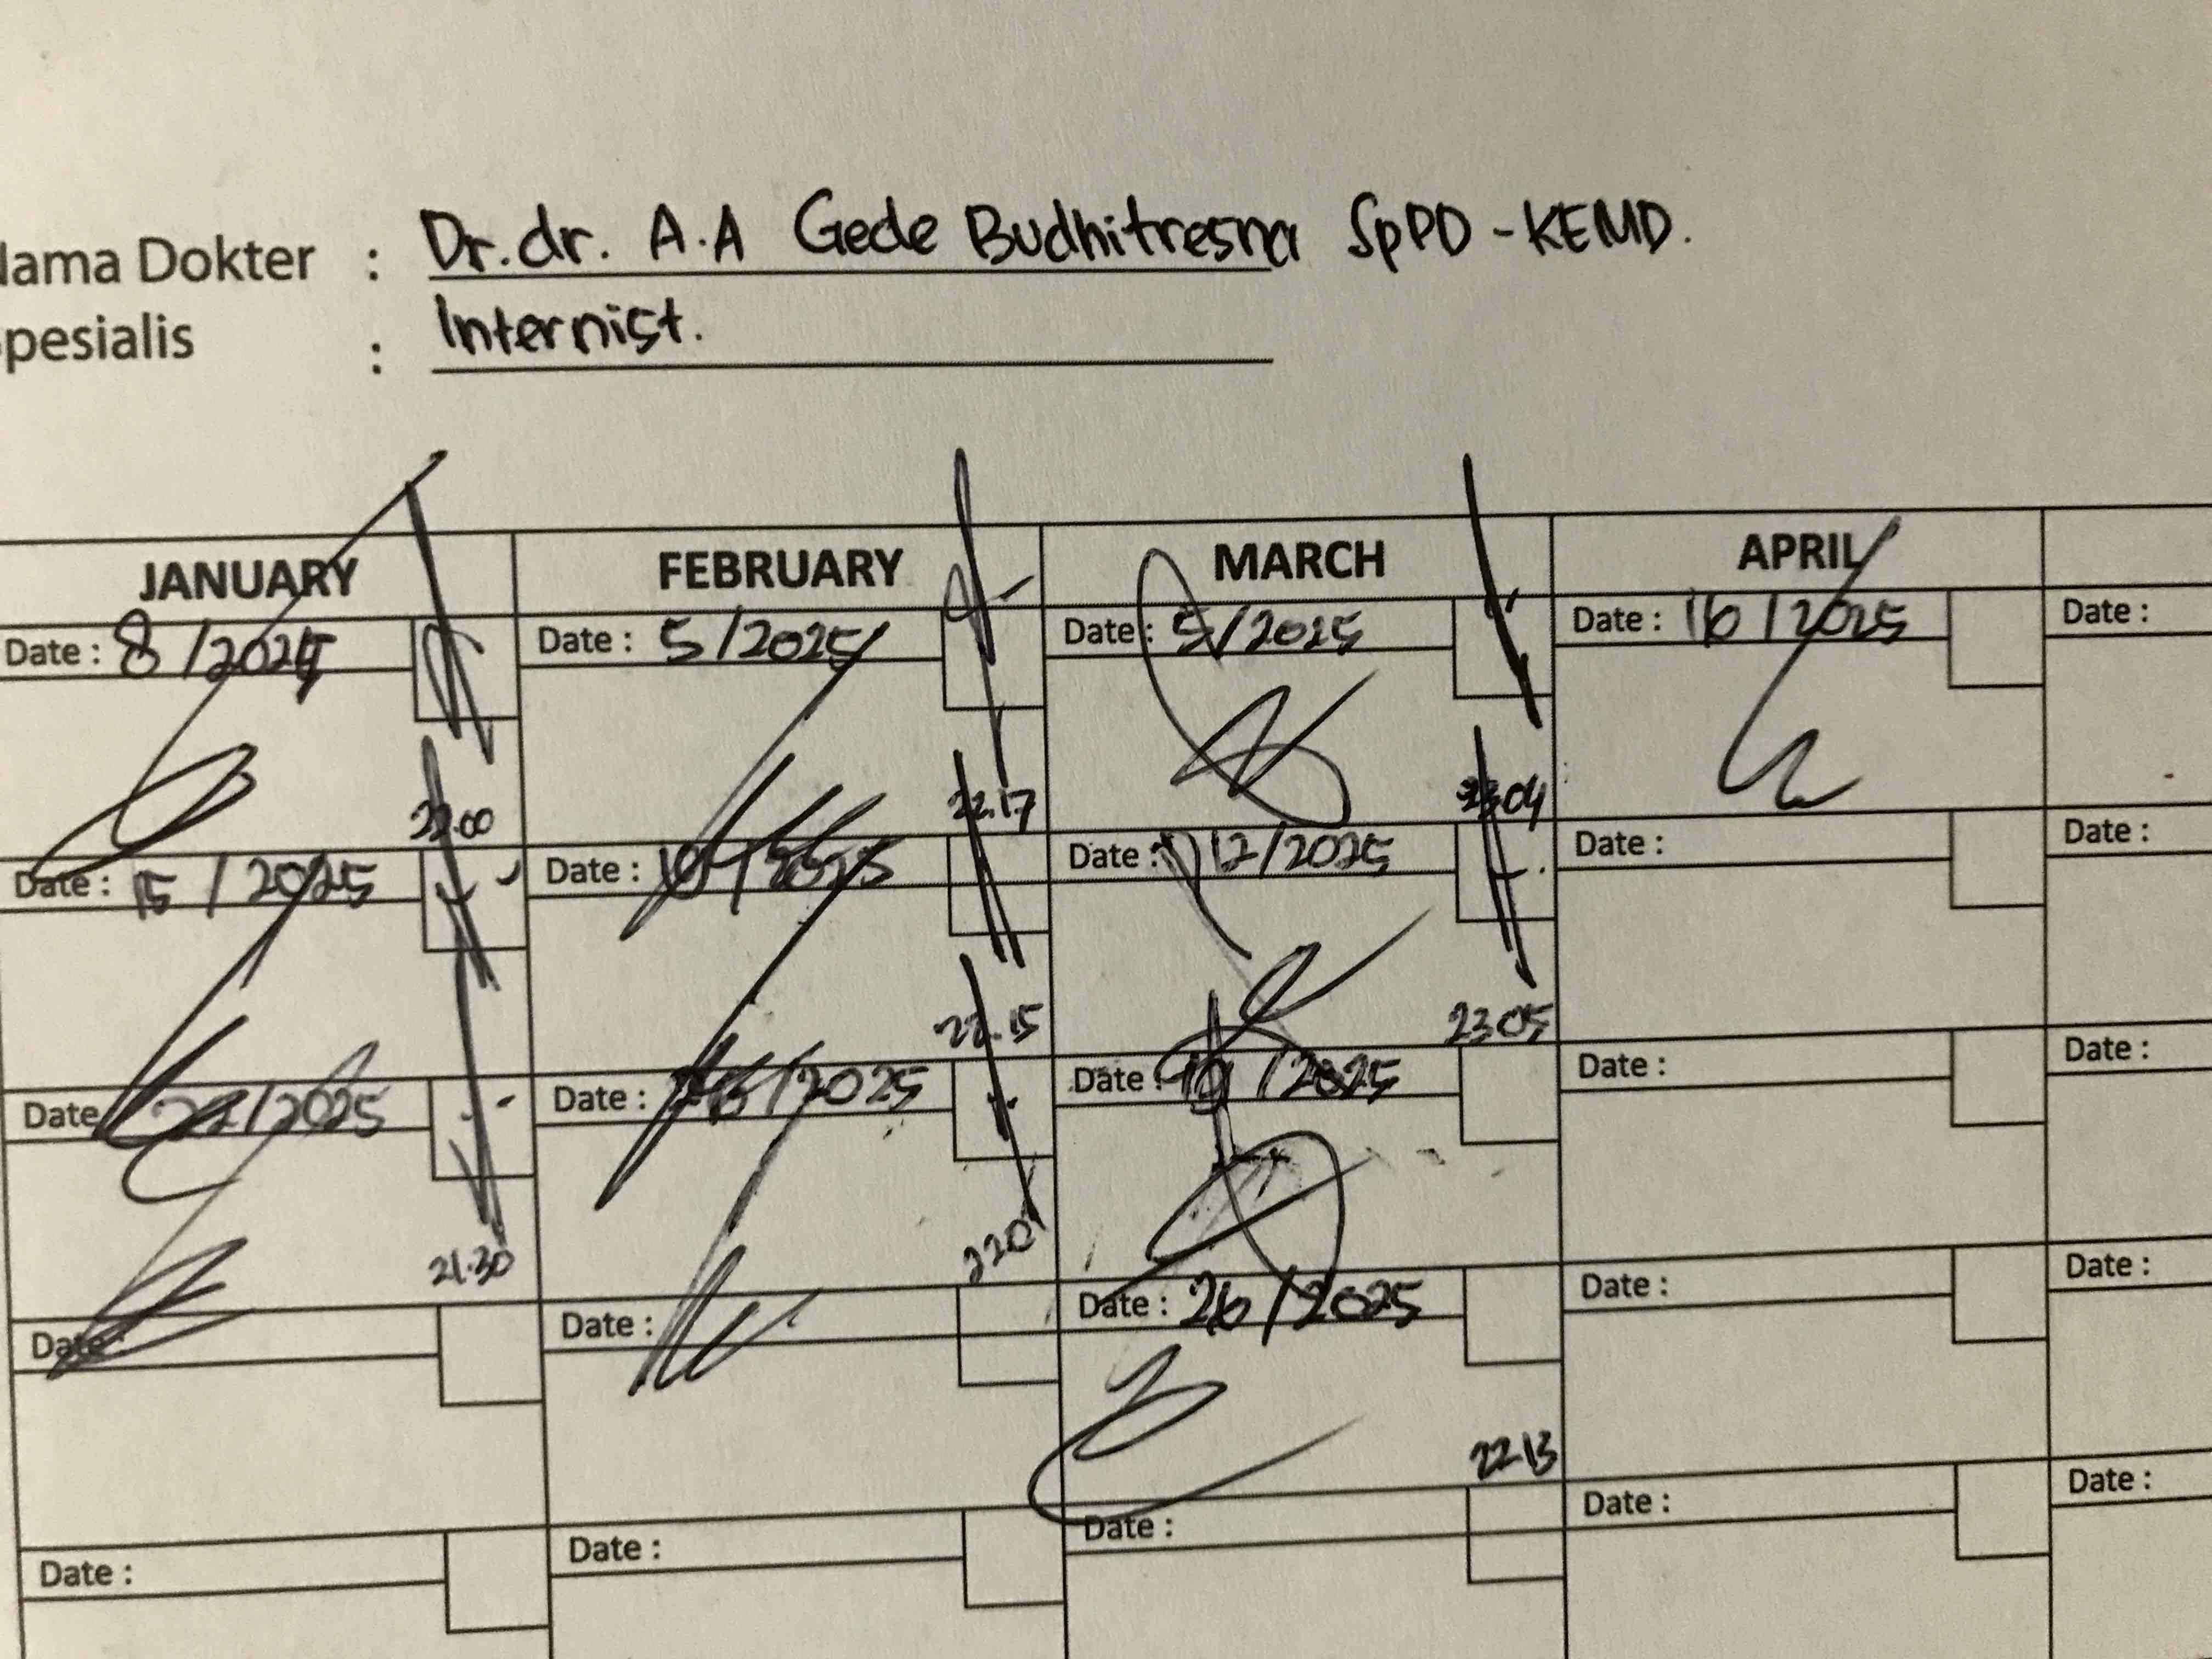 Nama Dokter : Dr. dr. A.A Gede Budhitresna SpPD - KEMD.
Spesialis : Internist.
JANUARY FEBRUARY MARCH APRIL
Date : 8 / Date : 5 /2025 Date : 5/2025 Date : 16 / 2025 Date :
22.00 22.17 23.04
Date : 15 / 2025 Date : Date : 12/2025 Date : Date :
22.15 23.05
Date 22/2025 Date : /2025 Date : 19 /2025 Date : Date :
21.30 220
Date : Date : Date : 26/2025 Date : Date :
22 13
Date : Date : Date : Date : Date :